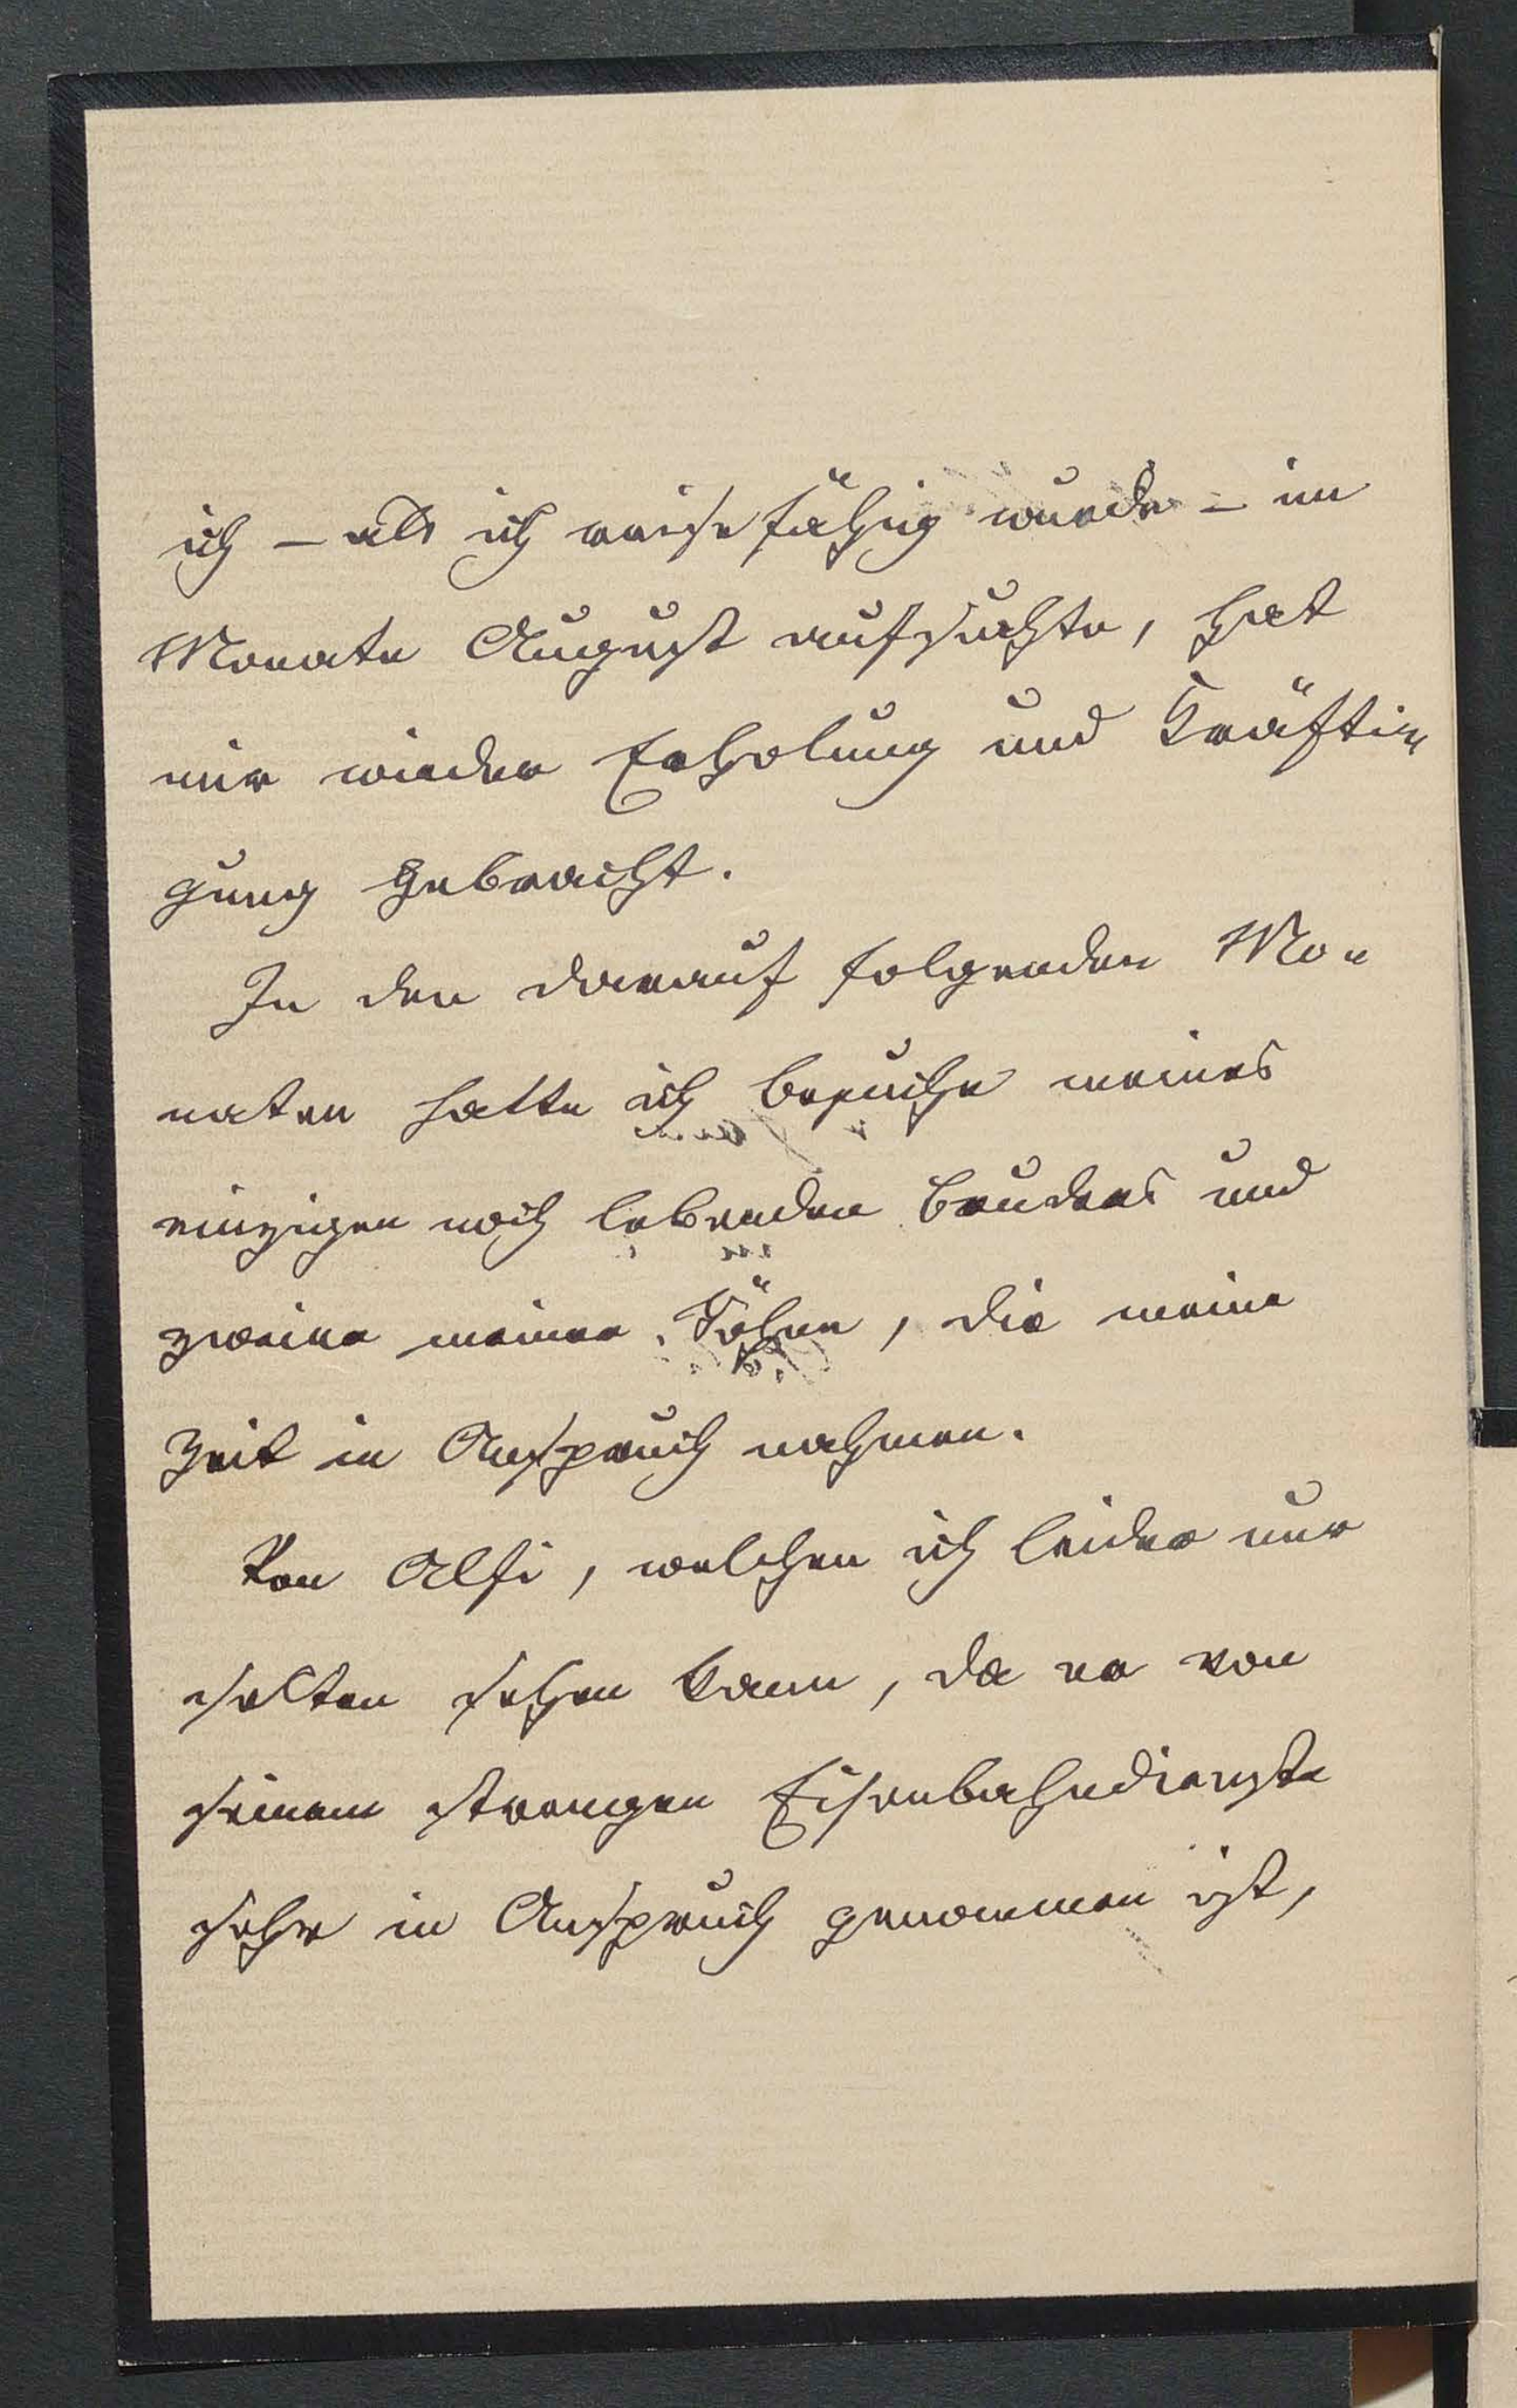 ich – als ich reisefähig wurde – im
Monate August aufsuchte, hat
mir wieder Erholung und Kräfti=
gung gebracht.
In den darauf folgenden Mo=
naten hatte ich Besuche meines
einzigen noch lebenden Bruders und
zweier meiner Söhne, die meine
Zeit in Anspruch nahmen.
Von Alfi, welchen ich leider nur
selten sehen kann, da er von
seinem strengen Eisenbahndienste
sehr in Anspruch genommen ist,